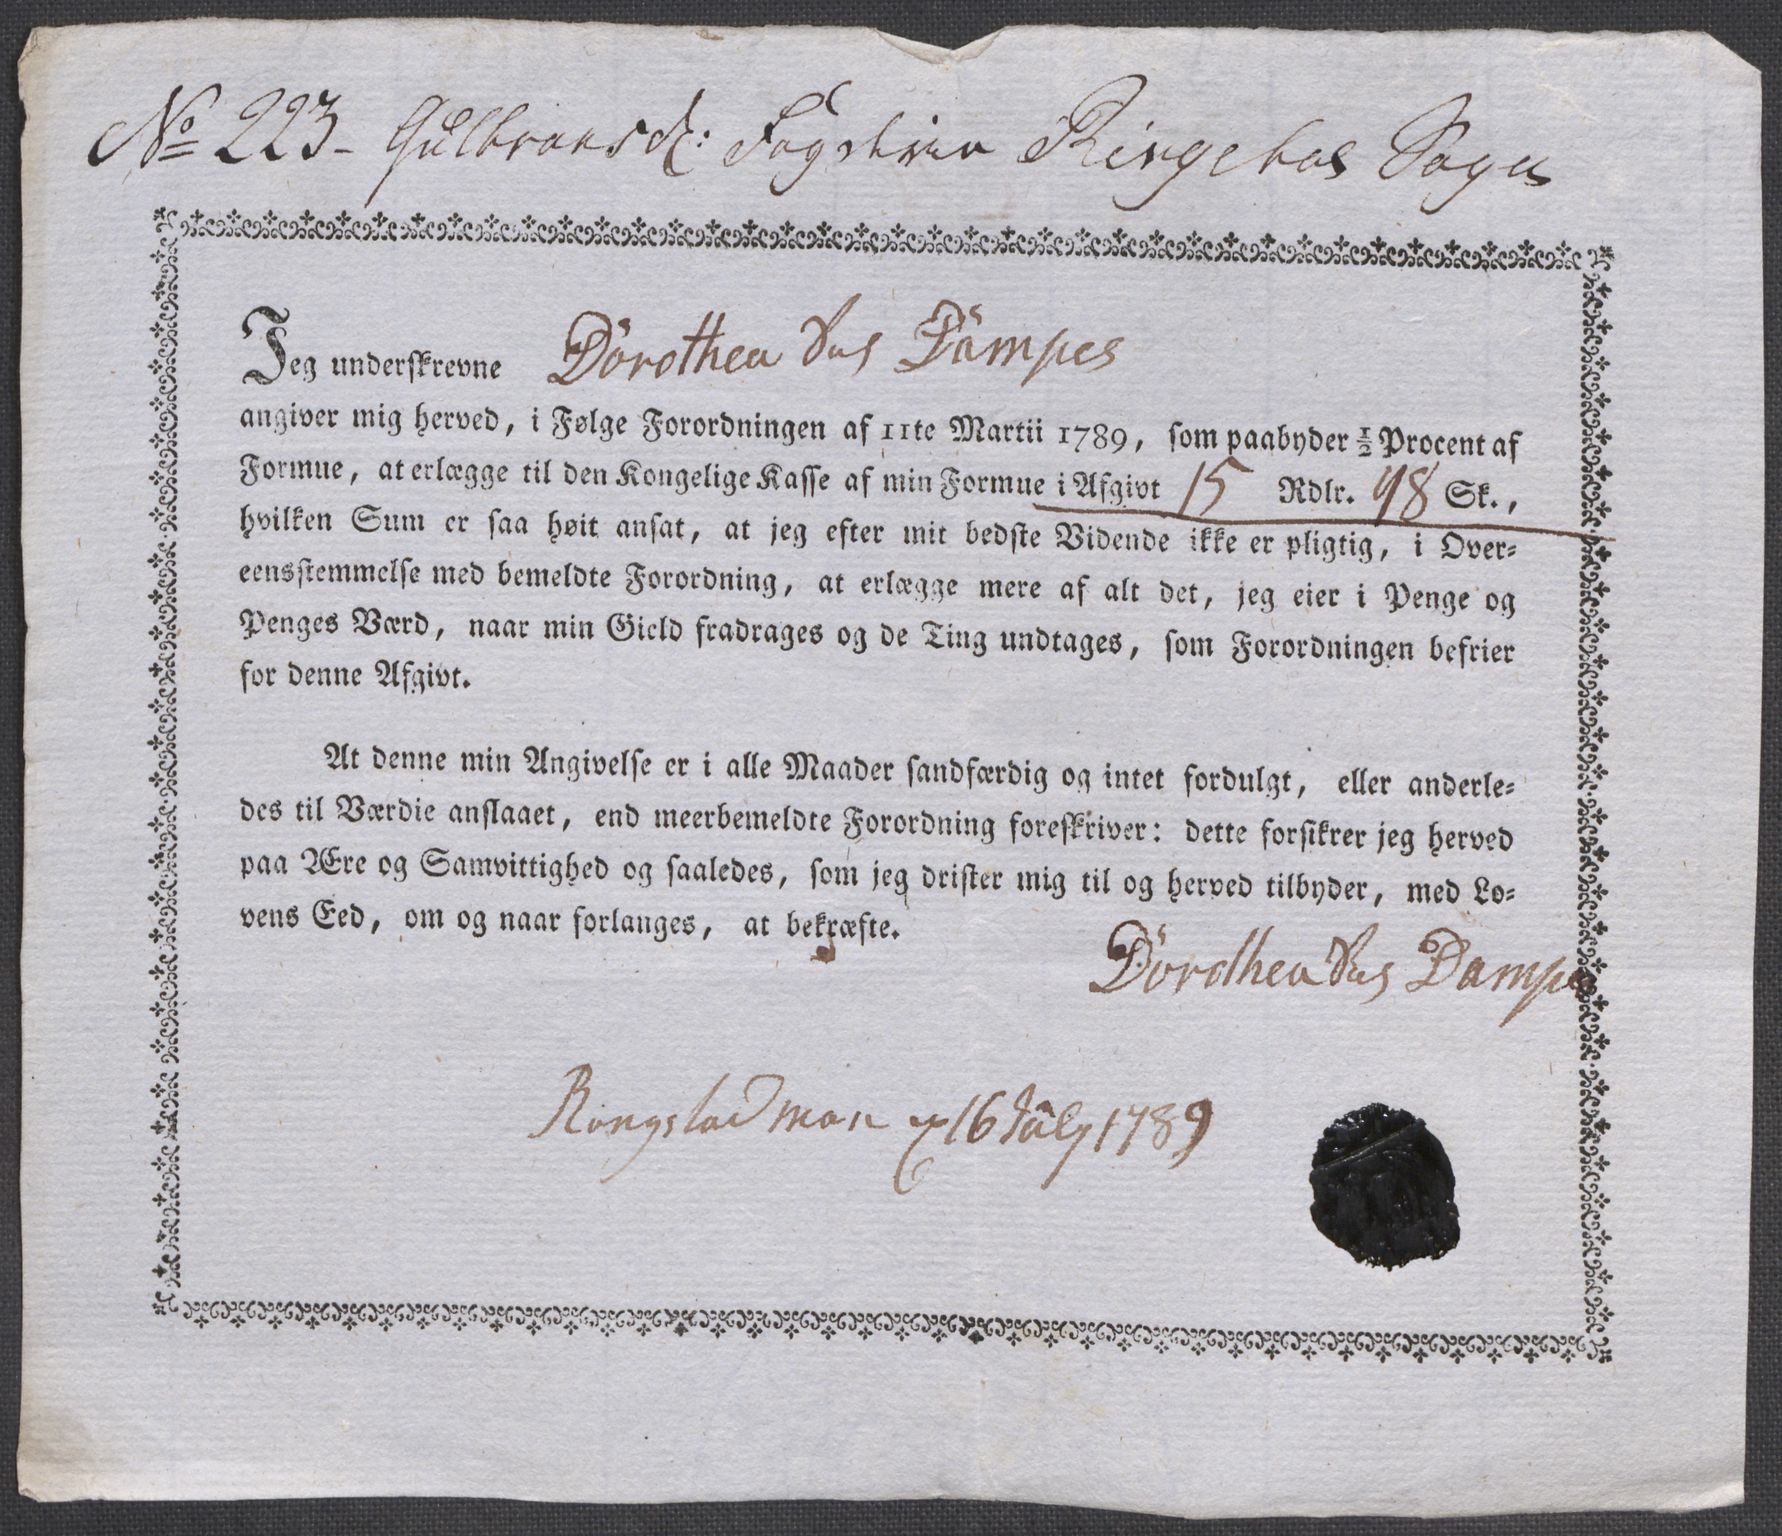 No 223 - Gulbransd: Fogderie Ringeboe Sogn
Jeg underskrevne Dorothea Sal Dampes
angiver mig herved, i Følge Forordningen af 11te Martii 1789, som paabyder ½ Procent af
Formue, at erlægge til den Kongelige Kasse af min Formue i Afgivt 15 Rdlr. 48 Sk.,
hvilken Sum er saa høit ansat, at jeg efter mit bedste Vidende ikke er pligtig, i Over-
eensstemmelse med bemeldte Forordning, at erlægge mere af alt det, jeg eier i Penge og
Penges Værd, naar min Gield fradrages og de Ting undtages, som Forordningen befrier
for denne Afgivt.
At denne min Angivelse er i alle Maader sandfærdig og intet fordulgt, eller anderle-
des til Værdie anslaaet, end meerbemeldte Forordning foreskriver: dette forsikrer jeg herved
paa Ære og Samvittighed og saaledes, som jeg drister mig til og herved tilbyder, med Lo-
vens Eed, om og naar forlanges, at bekræfte.
Dorothea Sal Dampes
Ringstad moen 16 July 1789